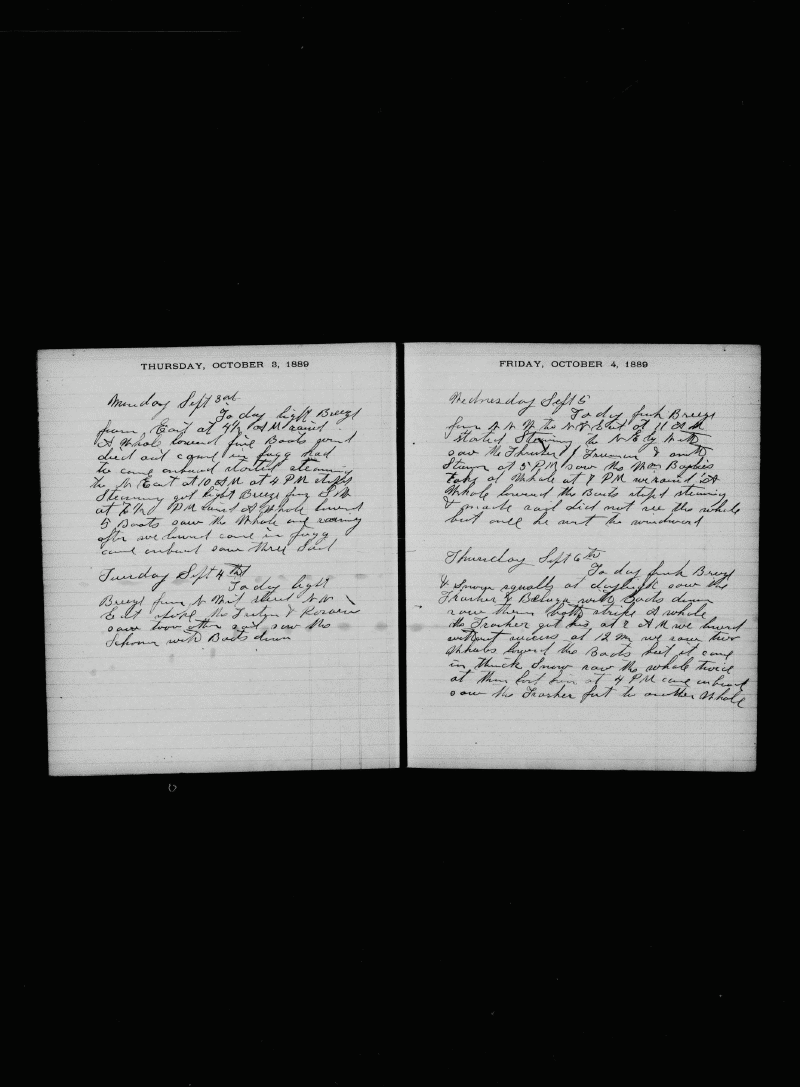 THURSDAY, OCTOBER 3, 1889
Monday Sept 3rd
To day light Breeze
from East at 4½ AM raised
A Whale lowered five Boats wind
died out came in fogg had
to come onboard started steaming
to N. East at 10 AM at 4 PM stopt
Steaming got light Breeze from S W
at PM raised A Whale lowerd
5 Boats saw the Whale once
after we lowerd came in fogg
came onbord saw three Sail
Tuesday Sept 4th
To day light
Breeze from N West steerd N N
East spoke the Evelyn &
saw two other sail saw the
Schoner with Boats down
FRIDAY, OCTOBER 4, 1889
Wednesday Sept 5
To day fresh Breeze
from N N W to N N East at 11 A M
started Steaming to N E by N
saw the Thrasher Freeman &
Steam at 5 P M saw the Wm Baylies
take a Whale at 7 P M we raised A
Whale lowerd the Boats stopt steaming
& made sail did not see the whale
but once he went to windward
Thursday Sept 6th
To day fresh Breeze
& Snow squalls at daylight saw the
Trasher & Beluga with Boats down
saw them both strike A whale
the Trasher got his, at 2 A M we lowerd
without success at 12 M, we saw two
Whales lowerd the Boats but it came
in thick Snow saw the whale twice
at then lost him at 4 PM came onbord
saw the Trasher fast to another Whale